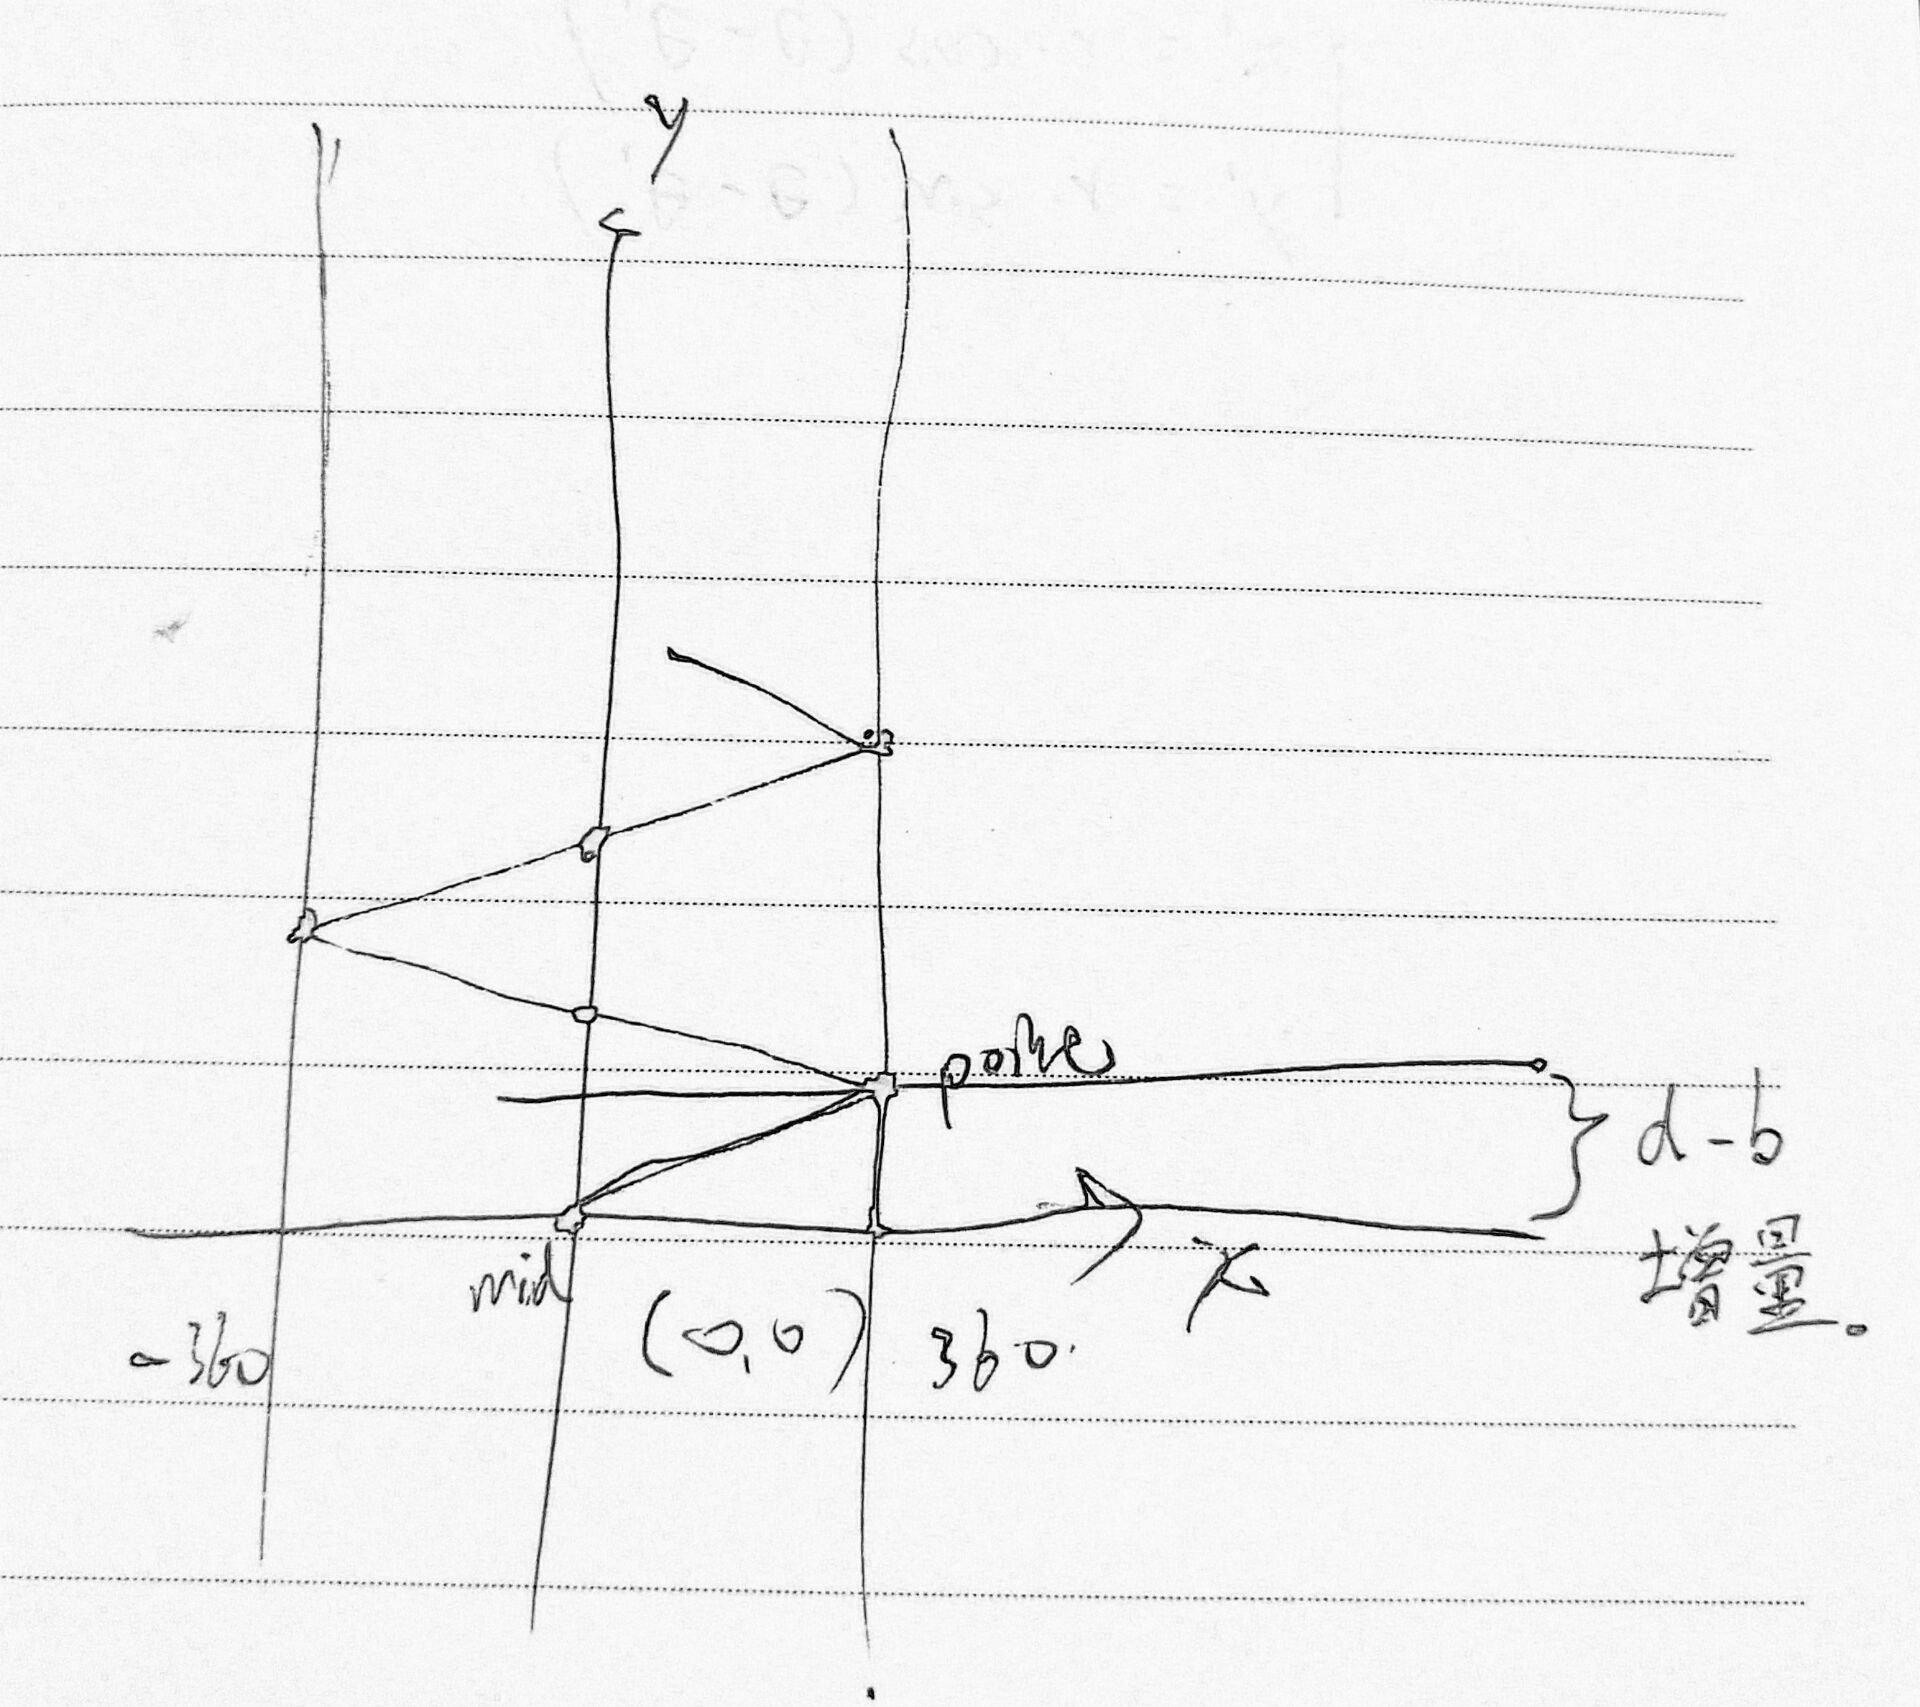 y
d-b
增量。
x
mid
(0,0)
-360
360.